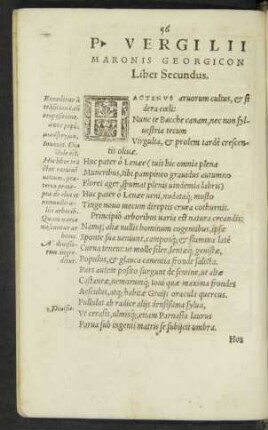 56
P. VERGILII
MARONIS GEORGICON
Liber Secundus.
HACTENVS aruorum cultus, & si
dera cœli:
Nunc te Bacche canam, nec non syl
uestria tecum
Virgulta, & prolem tardè crescen
tis oliuæ.
Huc pater ô Lenæe (tuis hic omnia plena
Muneribus, tibi pampineo grauidus autumno
Floret ager, spumat plenis uindemia labris)
Huc pater ô Lenæe ueni, nudataq; musto
Tinge nouo mecum direptis crura cothurnis.
Principiò arboribus uaria est natura creandis:
Namq; aliæ nullis hominum cogentibus, ipsæ
Sponte sua ueniunt, camposq; & flumina latè
Curua tenent: ut molle siler, lentæq; genistæ,
Populus, & glauca canentia fronde salicta.
Pars autem posito surgunt de semine, ut altæ
Castaneæ, nemorumq; Ioui quæ maxima frondet
Aesculus, atq; habitæ Graijs oracula quercus.
Pullulat ab radice alijs densissima sylua,
Vt cerasis, ulmisq; etiam Parnasia laurus
Parua sub ingenti matris se subijcit umbra.
Hos